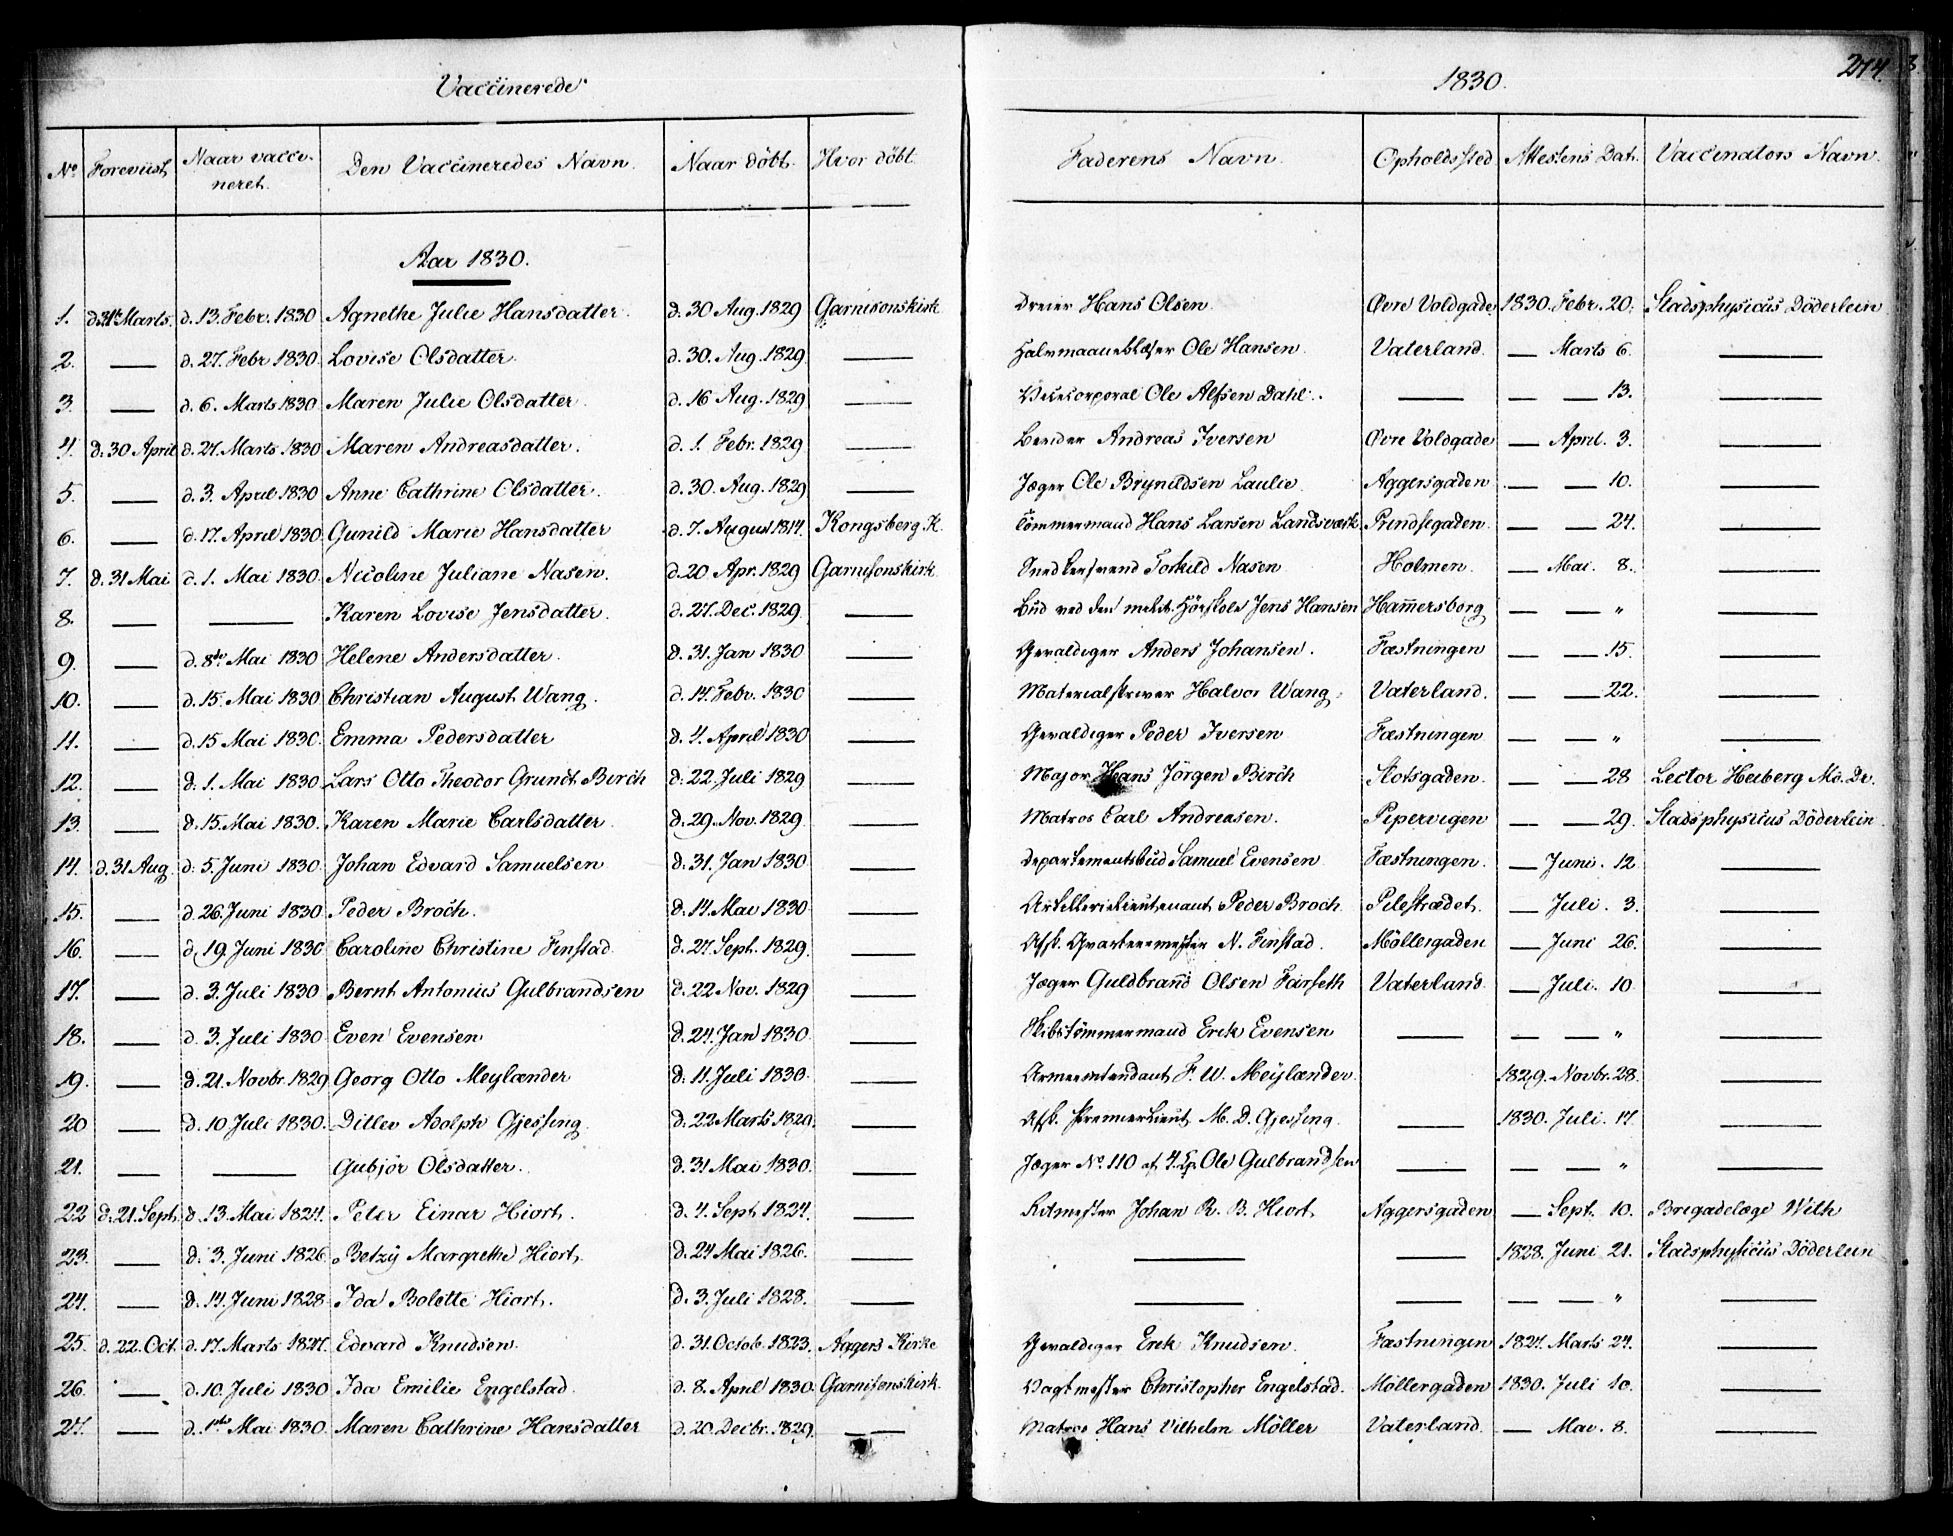 Vaccinerede
1830.
274.
No Foreviist Naar vacci- Den Vaccineredes Navn. Naar döbt. Hvor döbt. Faderens Navn. Opholdssted Attestens Dat. Vaccinators Navn.
neret.
Aar 1830.
1. d. 31te Marts. d. 13. Febr. 1830 Agnethe Julie Hansdatter. d. 30 Aug. 1829 Garnisonskirk. Dreier Hans Olsen. Øvre Voldgade 1830. Febr. 20. Stadsphysicus Döderlein
2. — d. 27. Febr 1830. Lovise Olsdatter. d. 30. Aug. 1829 — Halvmaaneblæser Ole Hansen. Vaterland. — Marts 6. —
3. — d. 6. Marts 1830 Maren Julie Olsdatter. d. 16 Aug. 1829 — Vicecorporal Ole Alfsen Dahl. — — — 13. —
4. d. 30 April d. 27. Marts 1830 Maren Andreasdatter. d. 1. Febr. 1829 — Andreas Iversen Øvre Voldgade — April. 3. —
5. — d. 3. April 1830 Anne Cathrine Olsdatter. d. 30. Aug. 1829 — Jæger Ole Brynildsen Laulie. Aggersgaden — — 10. —
6. — d. 17. April 1830 Gunild Marie Hansdatter d. 7. August 1814. Kongsberg K. Tömmermand Hans Larsen Landsværk Prindsegaden. — — 24. —
7. d. 31 Mai d. 1. Mai 1830. Nicoline Juliane Nasen. d. 20 Apr. 1829 Garnisonskirk. Torkild Nasen Holmen. — Mai. 8. —
8. — — Karen Lovise Jensdatter. d. 27. Dec. 1829. — Bud ved den milit. Höiskole Jens Hansen Hammersborg — — " —
9. — d. 8de Mai 1830 Helene Andersdatter. d. 31. Jan 1830 — Gevaldiger Anders Johansen. Fæstningen — — 15. —
10. — d. 15. Mai 1830 Christian August Wang. d. 14. Febr. 1830 — Materialskriver Halvor Wang. Vaterland. — — 22. —
11. — d. 15 Mai 1830. Emma Pedersdatter d. 4. April 1830 — Gevaldiger Peder Iversen Fæstningen — — " —
12. — d. 1. Mai 1830. Lars Otto Theodor Grundt Birch d. 22. Juli 1829 — Major Hans Jörgen Birch Slotsgaden. — — 28 Lector Heiberg M. Dr.
13. — d. 15. Mai 1830. Karen Marie Carlsdatter. d. 29. Nov. 1829. — Matros Carl Andreasen. Pipervigen — — 29. Stadsphysicus Döderlein.
14. d. 31 Aug. d. 5. Juni 1830. Johan Edvard Samuelsen d. 31. Jan 1830 — Departementsbud Samuel Evensen Fæstningen. — Juni. 12. —
15. — d. 26. Juni 1830 Peder Broch. d. 14. Mai 1830 — Artillerielieutenant Peder Broch Pilestrædet. — Juli. 3. —
16. — d. 19. Juni 1830 Caroline Christine Finstad. d. 27. Sept. 1829. — Afsk. Qvarteermester N. Finstad. Möllergaden — Juni 26. —
17. — d. 3. Juli 1830 Bernt Antonius Gulbrandsen d. 22 Nov. 1829 — Jæger Guldbrand Olsen Farseth Vaterland — Juli. 10. —
18. — d. 3. Juli 1830 Even Evensen d. 24. Jan 1830. — Skibstömmermand Erik Evensen — — — " —
19. — d. 21. Novbr. 1829 Georg Otto Meylænder d. 11. Juli 1830. — F. W. Meylænder. 1829. Novbr. 28. —
20 — d. 10 Juli 1830. Ditlev Adolph Gjessing. d. 22 Marts 1829. — Afsk. Premierlieut. M. D. Gjessing. — 1830. Juli. 17. —
21. — — Gubjör Olsdatter. d. 31 Mai 1830. — Jæger No. 110 af 4. Cp. Ole Gulbrandsen — — — " —
22 d. 21. Sept. d. 13. Mai 1824. Peter Einar Hiort. d. 4. Sept. 1824. — Ritmester Johan R. B. Hiort. Aggersgaden — Sept. 10. Brigadelæge With
23. — d. 3. Juni 1826. Betzy Margrethe Hiort. d. 24 Mai 1826. — — — 1828. Juni 21. Stadsphysicus Döderlein
24. — d. 14. Juni 1828 Ida Bolette Hiort. d. 3. Juli 1828. — — — — — " —
25. d. 22. Oct. d. 17. Marts 1827. Edvard Knudsen. d. 31. Octob. 1823. Aggers Kirke Gevaldiger Erik Knudsen. Fæstningen 1827. Marts 24. —
26. — d. 10. Juli 1830 Ida Emilie Engelstad. d. 8. April 1830. Garnisonskirk. Vagtmester Christopher Engelstad. Möllergaden 1830. Juli 10. —
27. — d. 1ste Mai 1830. Maren Cathrine Hansdatter d. 20 Decbr. 1829. — Matros Hans Vilhelm Möller Vaterland. — Mai. 8. —